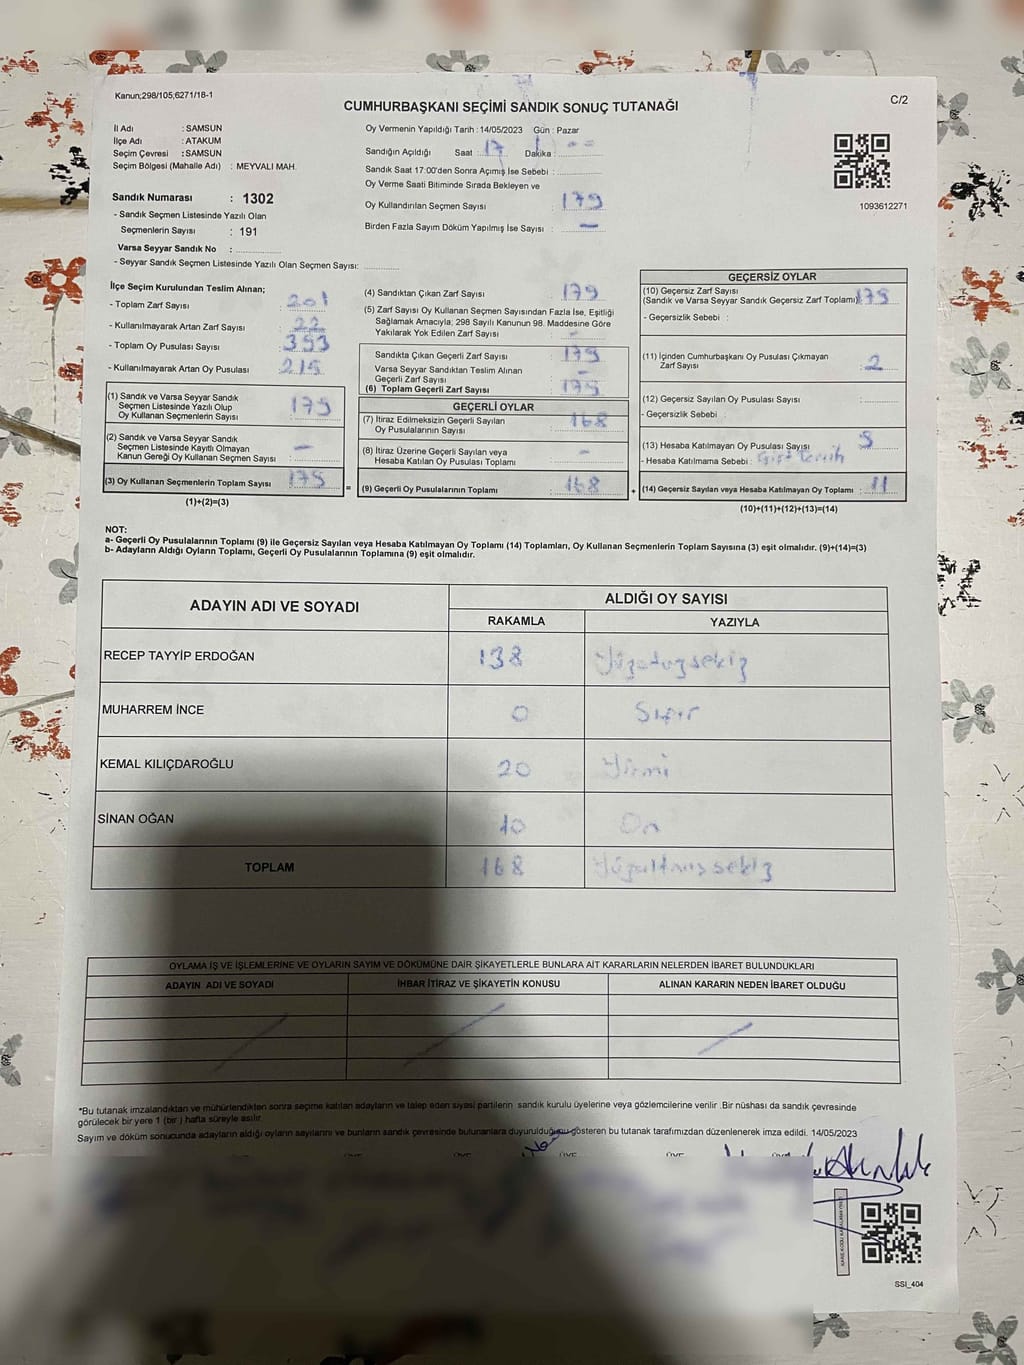 Kanun;298/105,6271/18-1
C/2
CUMHURBAŞKANI SEÇİMİ SANDIK SONUÇ TUTANAĞI
İl Adı : SAMSUN
İlçe Adı : ATAKUM
Seçim Çevresi : SAMSUN
Seçim Bölgesi (Mahalle Adı) : MEYVALI MAH.
Sandık Numarası : 1302
- Sandık Seçmen Listesinde Yazılı Olan
Seçmenlerin Sayısı : 191
Varsa Seyyar Sandık No :
- Seyyar Sandık Seçmen Listesinde Yazılı Olan Seçmen Sayısı:
Oy Vermenin Yapıldığı Tarih : 14/05/2023 Gün : Pazar
Sandığın Açıldığı Saat : 17 Dakika :
Sandık Saat 17:00'den Sonra Açımış İse Sebebi :
Oy Verme Saati Bitiminde Sırada Bekleyen ve
Oy Kullandırılan Seçmen Sayısı : 179
Birden Fazla Sayım Döküm Yapılmış İse Sayısı : —
1093612271
İlçe Seçim Kurulundan Teslim Alınan;
- Toplam Zarf Sayısı : 201
- Kullanılmayarak Artan Zarf Sayısı : 22
- Toplam Oy Pusulası Sayısı : 393
- Kullanılmayarak Artan Oy Pusulası : 215
(1) Sandık ve Varsa Seyyar Sandık
Seçmen Listesinde Yazılı Olup
Oy Kullanan Seçmenlerin Sayısı : 179
(2) Sandık ve Varsa Seyyar Sandık
Seçmen Listesinde Kayıtlı Olmayan
Kanun Gereği Oy Kullanan Seçmen Sayısı : —
(3) Oy Kullanan Seçmenlerin Toplam Sayısı : 179
(1)+(2)=(3)
(4) Sandıktan Çıkan Zarf Sayısı : 179
(5) Zarf Sayısı Oy Kullanan Seçmen Sayısından Fazla İse, Eşitliği
Sağlamak Amacıyla; 298 Sayılı Kanunun 98. Maddesine Göre
Yakılarak Yok Edilen Zarf Sayısı : –
Sandıkta Çıkan Geçerli Zarf Sayısı : 179
Varsa Seyyar Sandıktan Teslim Alınan
Geçerli Zarf Sayısı : –
(6) Toplam Geçerli Zarf Sayısı : 179
GEÇERLİ OYLAR
(7) İtiraz Edilmeksizin Geçerli Sayılan
Oy Pusulalarının Sayısı : 168
(8) İtiraz Üzerine Geçerli Sayılan veya
Hesaba Katılan Oy Pusulası Toplamı : –
= (9) Geçerli Oy Pusulalarının Toplamı : 168
GEÇERSİZ OYLAR
(10) Geçersiz Zarf Sayısı
(Sandık ve Varsa Seyyar Sandık Geçersiz Zarf Toplamı) : 179
- Geçersizlik Sebebi :
(11) İçinden Cumhurbaşkanı Oy Pusulası Çıkmayan
Zarf Sayısı : 2
(12) Geçersiz Sayılan Oy Pusulası Sayısı :
- Geçersizlik Sebebi :
(13) Hesaba Katılmayan Oy Pusulası Sayısı : 9
- Hesaba Katılmama Sebebi : Çift Tercih
+ (14) Geçersiz Sayılan veya Hesaba Katılmayan Oy Toplamı : 11
(10)+(11)+(12)+(13)=(14)
NOT:
a- Geçerli Oy Pusulalarının Toplamı (9) ile Geçersiz Sayılan veya Hesaba Katılmayan Oy Toplamı (14) Toplamları, Oy Kullanan Seçmenlerin Toplam Sayısına (3) eşit olmalıdır. (9)+(14)=(3)
b- Adayların Aldığı Oyların Toplamı, Geçerli Oy Pusulalarının Toplamına (9) eşit olmalıdır.
ADAYIN ADI VE SOYADI
ALDIĞI OY SAYISI
RAKAMLA YAZIYLA
RECEP TAYYİP ERDOĞAN 138 Yüzotuzsekiz
MUHARREM İNCE 0 Sıfır
KEMAL KILIÇDAROĞLU 20 Yirmi
SİNAN OĞAN 10 On
TOPLAM 168 Yüzaltmışsekiz
OYLAMA İŞ VE İŞLEMLERİNE VE OYLARIN SAYIM VE DÖKÜMÜNE DAİR ŞİKAYETLERLE BUNLARA AİT KARARLARIN NELERDEN İBARET BULUNDUKLARI
ADAYIN ADI VE SOYADI İHBAR İTİRAZ VE ŞİKAYETİN KONUSU ALINAN KARARIN NEDEN İBARET OLDUĞU
*Bu tutanak imzalandıktan ve mühürlendikten sonra seçime katılan adayların ve talep eden siyasi partilerin sandık kurulu üyelerine veya gözlemcilerine verilir .Bir nüshası da sandık çevresinde
görülecek bir yere 1 (bir ) hafta süreyle asılır.
Sayım ve döküm sonucunda adayların aldığı oyların sayılarını ve bunların sandık çevresinde bulunanlara duyurulduğunu gösteren bu tutanak tarafımızdan düzenlenerek imza edildi. 14/05/2023
SSI_404